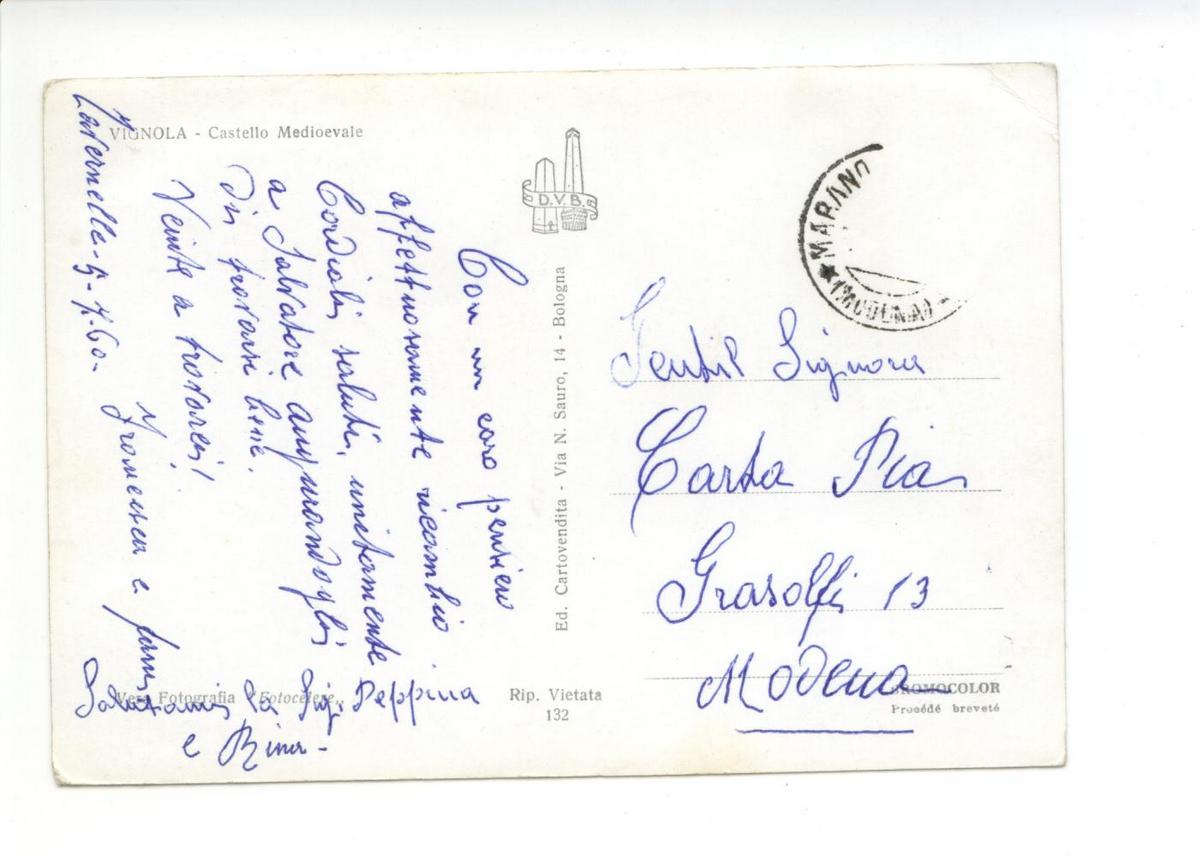 VIGNOLA - Castello Medioevale
D.V.B.
MARANO
(MODENA)
Con un caro pensiero
affettuosamente ricambio
Cordiali saluti, unitamente
a Salvatore augurandogli
di trovarsi bene.
Venite a trovarci!
e fam.
5-7-60-
Salutami la Sig. Peppina
e Rina-
Vera Fotografia "Fotocelere"
Rip. Vietata
132
Ed. Cartovendita - Via N. Sauro, 14 - Bologna
Gentil Signora
Carta Pia
Grasolfi 13
Modena
BROMOCOLOR
Procédé breveté